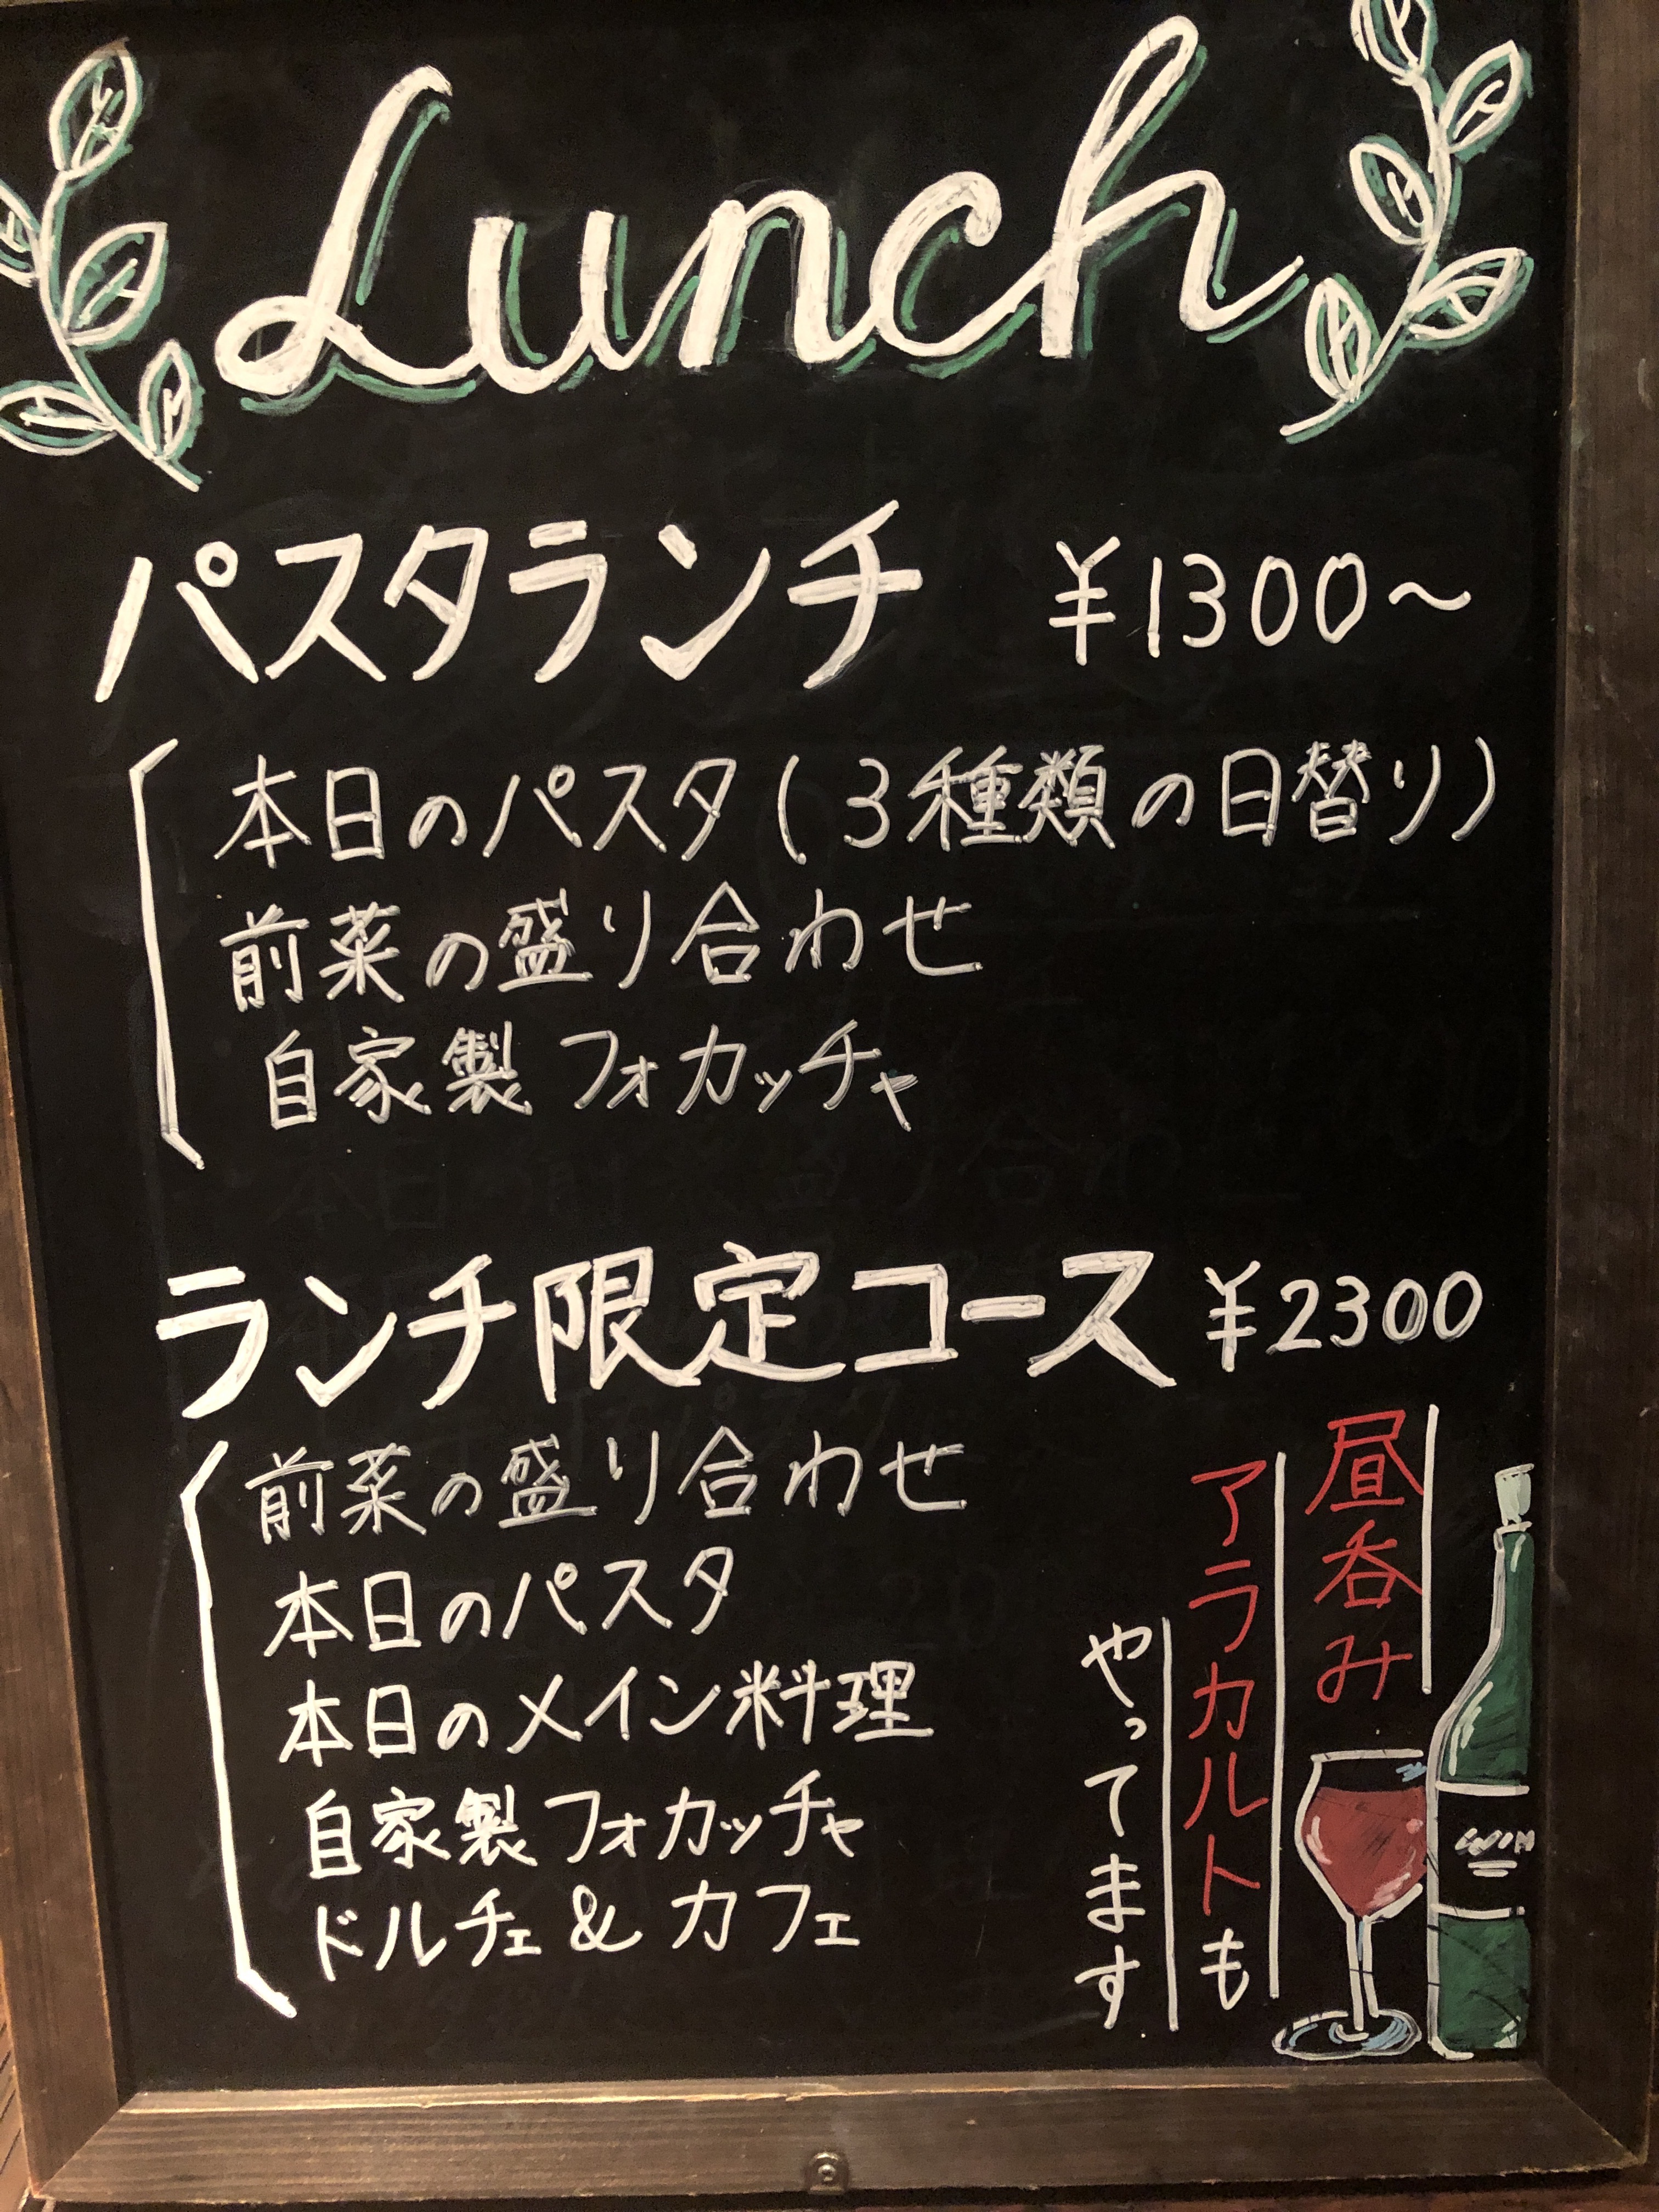 Lunch
パスタランチ ¥1300～
本日のパスタ(3種類の日替り)
前菜の盛り合わせ
自家製フォカッチャ
ランチ限定コース ¥2300
前菜の盛り合わせ
本日のパスタ
本日のメイン料理
自家製フォカッチャ
ドルチェ & カフェ
昼呑み
アラカルトも
やってます